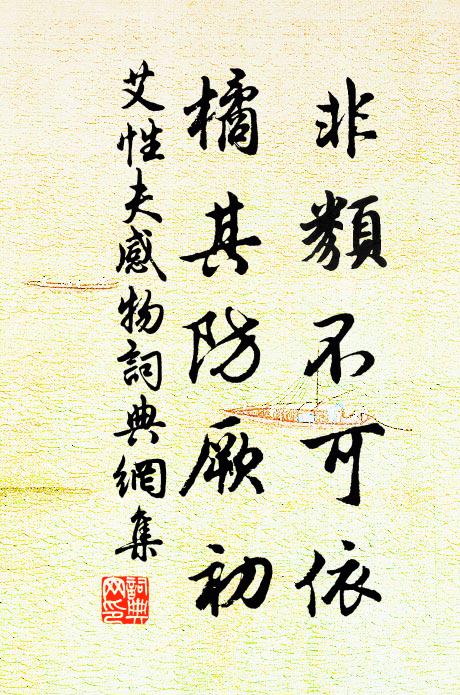 非類不可依
橘其防厥初
艾性夫感物詞典網集
詞典
网印